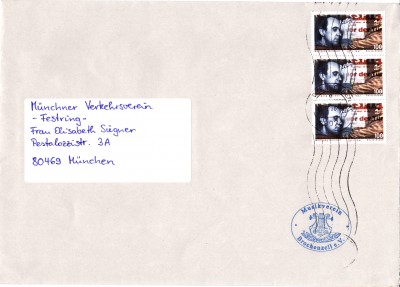 100
100
100
Münchner Verkehrsverein
- Festring -
Frau Elisabeth Siegner
Pestalozzistr. 3A
80469 München
Musikverein
Brochenzell e.V.